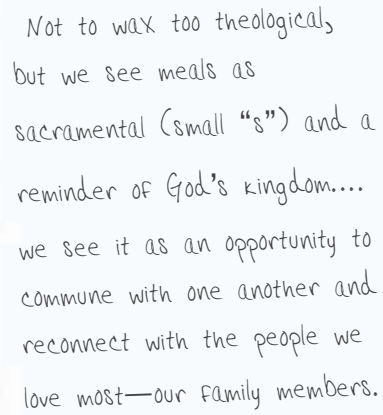 Not to wax too theological,
but we see meals as
sacramental (small “s”) and a
reminder of God's kingdom....
we see it as an opportunity to
commune with one another and
reconnect with the people we
love most—our family members.